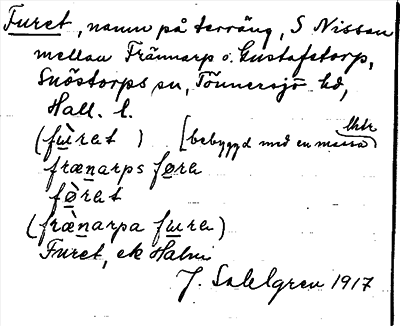 Furet, namn på terräng, S Nissan
mellan Frännarp o. Gustafstorp,
Snöstorps sn, Tönnersjö hd,
Hall. l.
(fùret ) [bebyggd med en massa
frænarps føre
fø̀ret
(fræ̀narpa fure)
Furet, ek Halmi
J. Sahlgren 1917